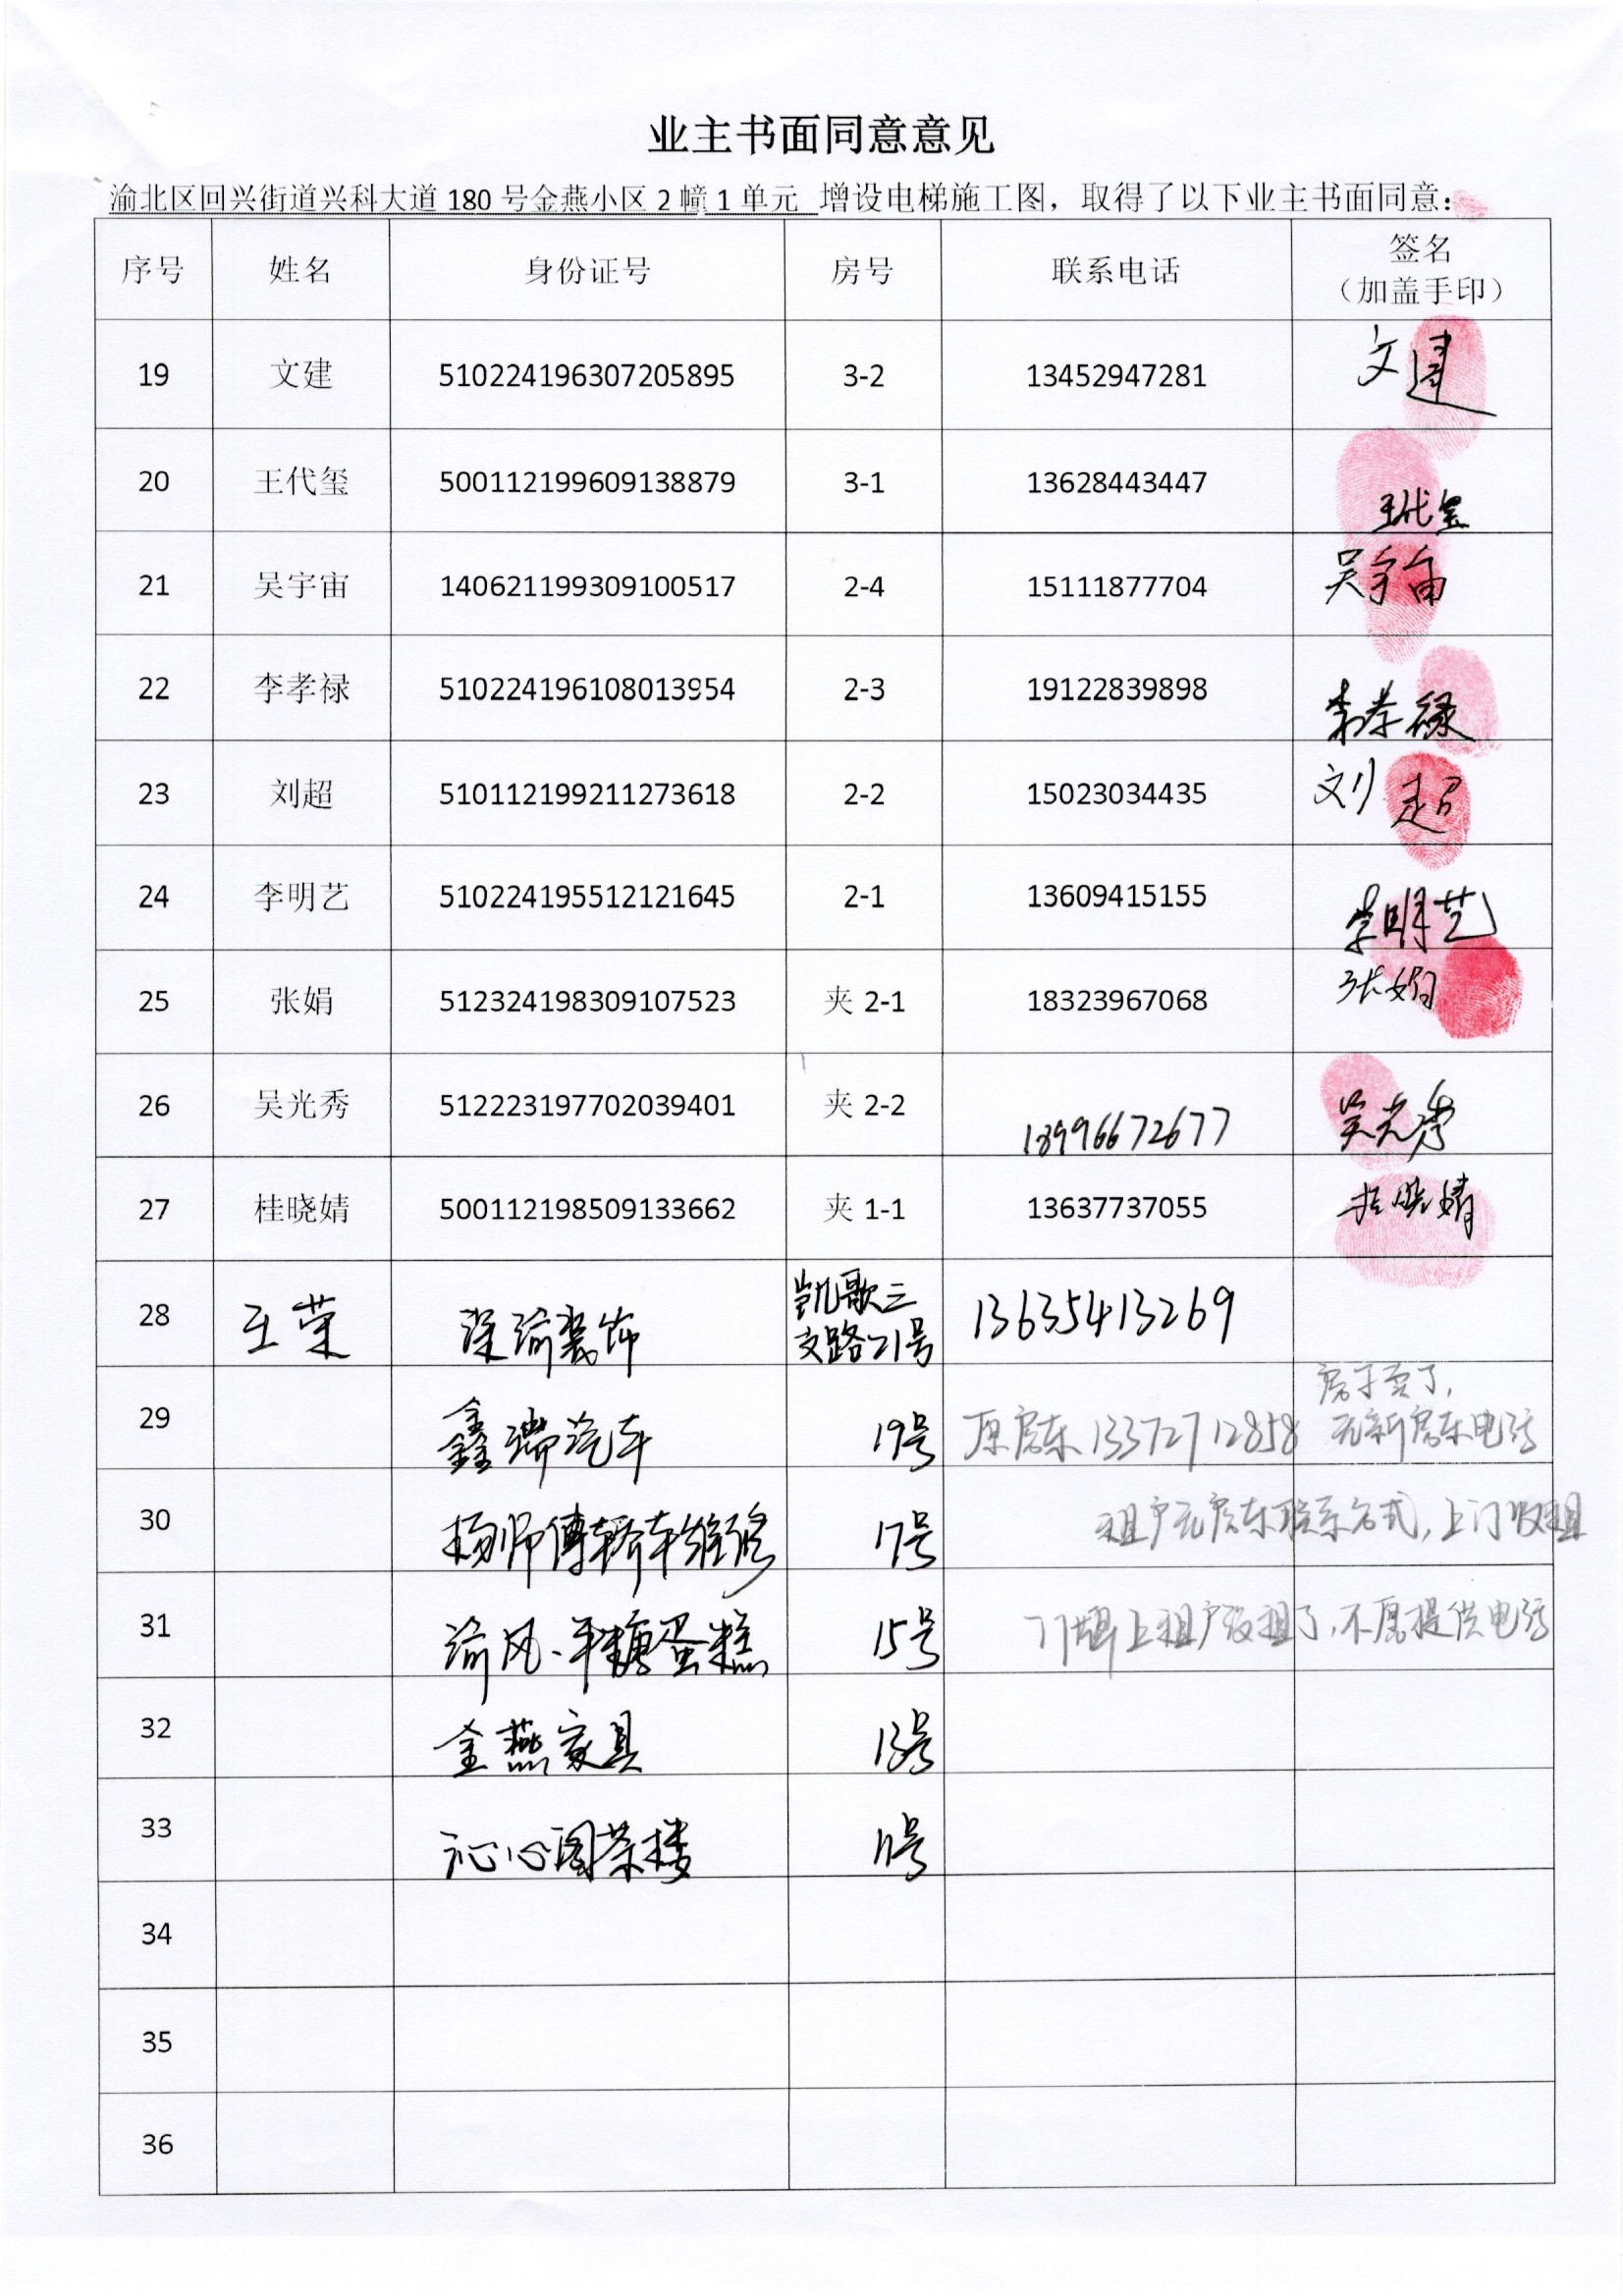 业主书面同意意见
渝北区回兴街道兴科大道 180 号金燕小区 2 幢 1 单元 增设电梯施工图，取得了以下业主书面同意：
序号 姓名 身份证号 房号 联系电话 签名
（加盖手印）
19 文建 510224196307205895 3-2 13452947281 文建
20 王代玺 500112199609138879 3-1 13628443447 王代玺
21 吴宇宙 140621199309100517 2-4 15111877704 吴宇宙
22 李孝禄 510224196108013954 2-3 19122839898 李孝禄
23 刘超 510112199211273618 2-2 15023034435 刘超
24 李明艺 510224195512121645 2-1 13609415155 李明艺
25 张娟 512324198309107523 夹 2-1 18323967068 张娟
26 吴光秀 512223197702039401 夹 2-2 18996672677 吴光秀
27 桂晓婧 500112198509133662 夹 1-1 13637737055 桂晓婧
28 王荣 深渝装饰 凯歌三
支路21号 13635413269
29 鑫瑞汽车 19号 原房东 13372712858 房子卖了，
无新房东电话
30 杨师傅轿车维修 17号 租户无房东联系方式，上门收租
31 渝风、半糖蛋糕 15号 门牌上租户改租了，不愿提供电话
32 金燕家具 13号
33 沁心阁茶楼 11号
34
35
36